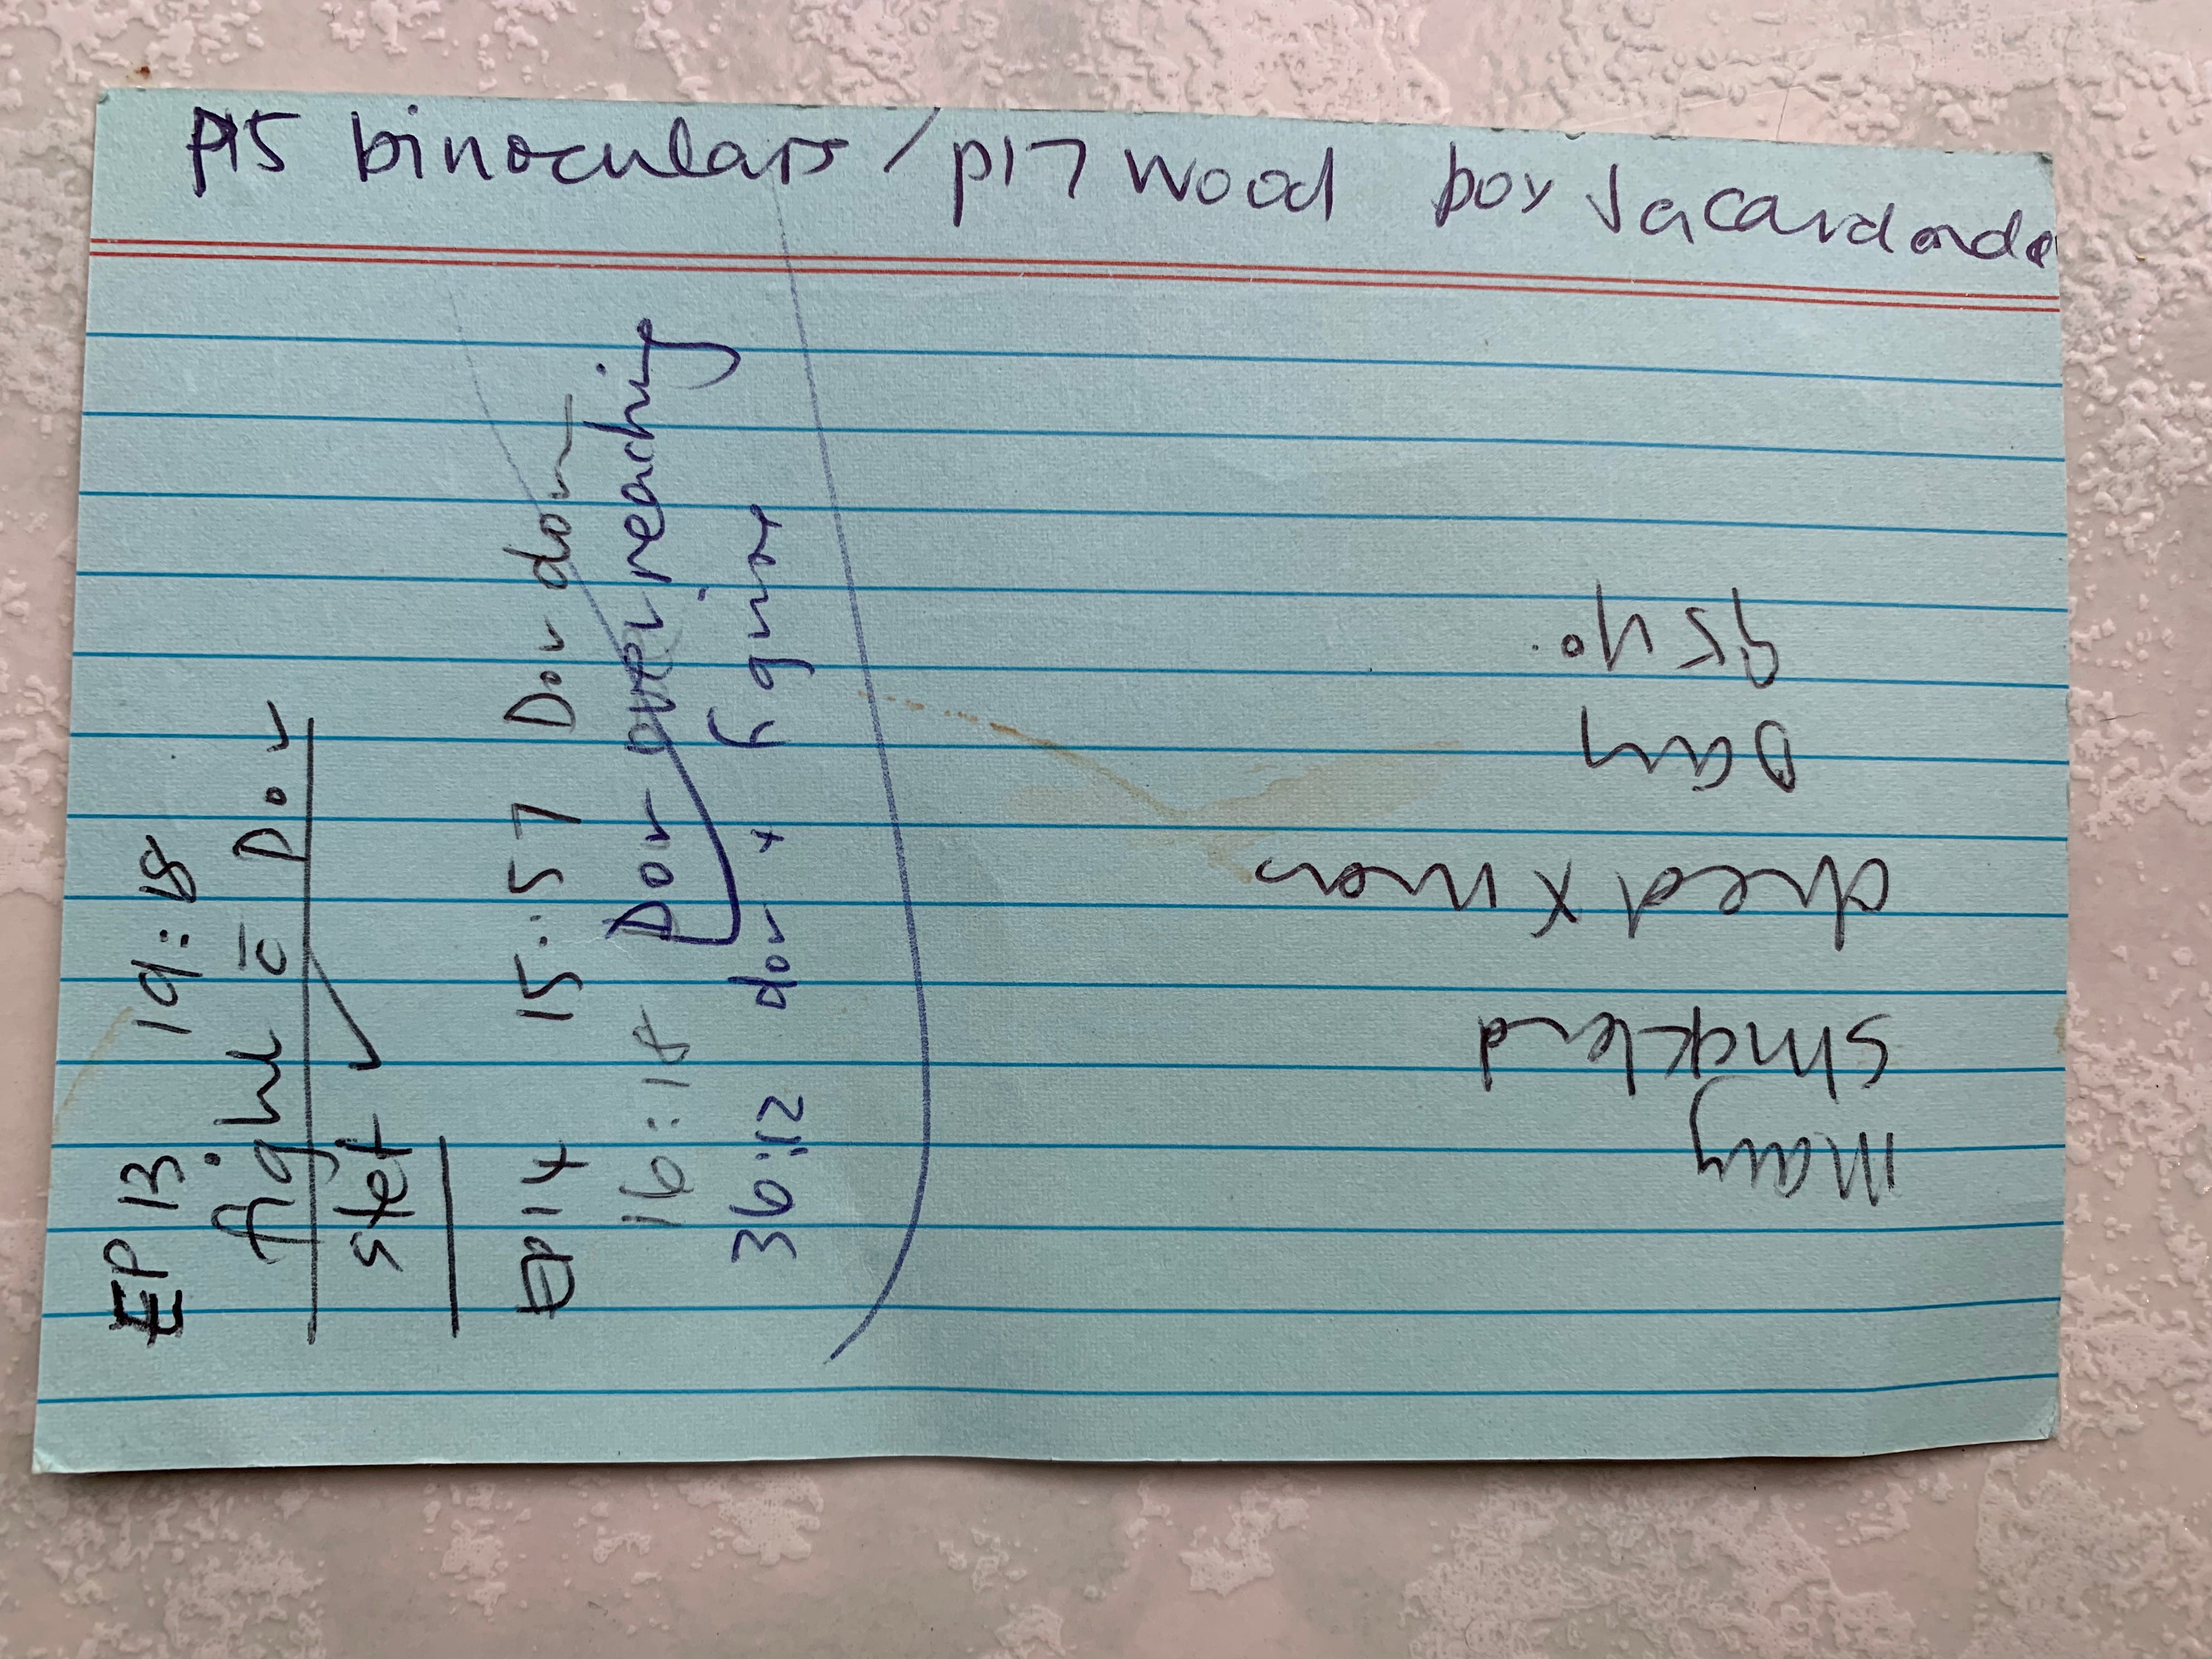 p15 binoculars / p17 wood box Jacardanda
EP 13 19:18
c̄ Dor
stet
EP14 15:57 Dor dom
16:18 Dor over reaching
36:12 dor + figure
Many
died Xmas
Day
95 yo.